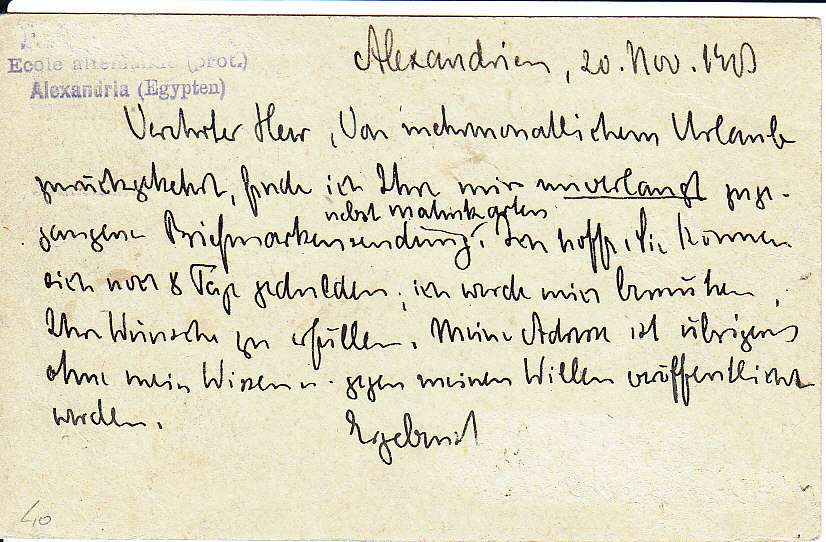 Ecole allemande (prot.)
Alexandria (Egypten)
Alexandrien, 20. Nov. 1903
Verehrter Herr, Von mehrmonatlichem Urlaube
zurückgekehrt, finde ich Ihre mir unverlangt zuge-
nebst Mahnkarten
gangene Briefmarkensendung. Ich hoffe, Sie können
sich noch 8 Tage gedulden, ich werde mich bemühen,
Ihre Wünsche zu erfüllen. Meine Adresse ist übrigens
ohne mein Wissen u. gegen meinen Willen veröffentlicht
worden.
Ergebenst
40